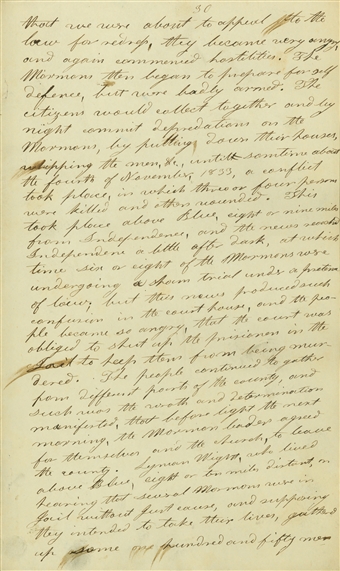 36
that we were about to appeal to the
law for redress, they became very angry
and again commenced hostilities. The
Mormons then began to prepare for self
defence, but were badly armed. The
citizens would collect together and by
night commit depredations on the
Mormons, by pulling down their houses,
whipping the men, &c., until sometime about
the fourth of November, 1833, a conflict
took place, in which three or four persons
were killed and others wounded. This
took place above Blue, eight or nine miles
from Independence, and the news reached
Independence a little after dark, at which
time six or eight of the Mormons were
undergoing a sham trial under a pretence
of law; but this news produced such
confusion in the court house, and the peo-
ple became so angry, that the court was
obliged to shut up the prisoners in the
Jail to keep them from being mur-
dered. The people continued to gather
from different parts of the county, and
such was the wrath and determination
manifested, that before light the next
morning, the Mormon leaders agreed
for themselves and the church, to leave
the county. Lyman Wight, who lived
above Blue, eight or ten miles distant, on
hearing that several Mormons were in
Jail without just cause, and supposing
they intended to take their lives, gathered
up some one hundred and fifty men